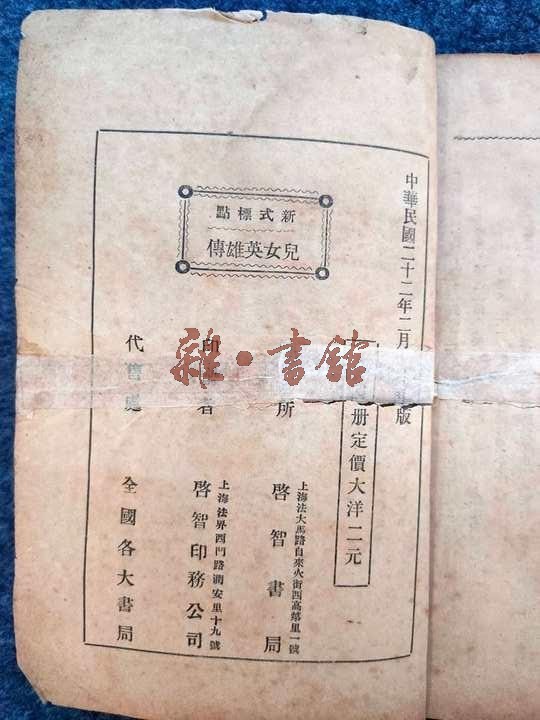 中華民國二十二年二月
版
册定價大洋二元
新式標點
兒女英雄傳
所
上海法大馬路自來火街西高第里一號
啓智書局
印
者
上海法界西門路潤安里十九號
啓智印務公司
代售處
全國各大書局
雜·書館